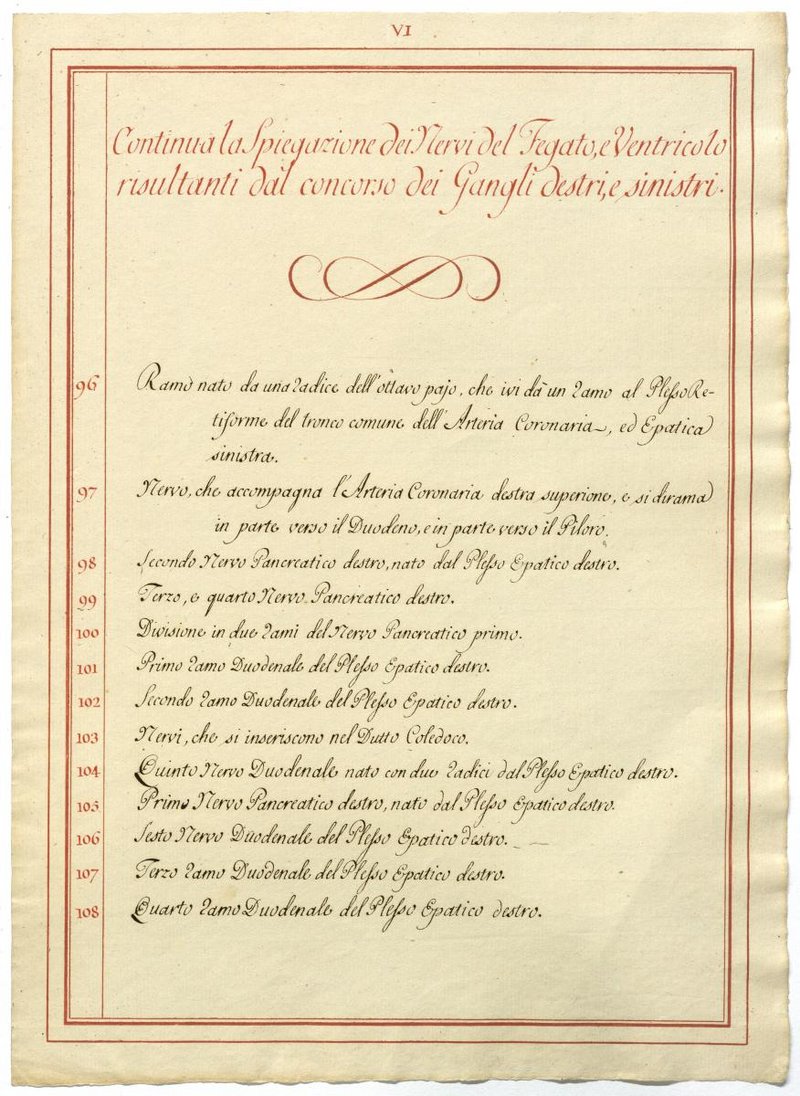 VI
Continua la Spiegazione dei Nervi del Fegato, e Ventricolo
risultanti dal concorso dei Gangli destri, e sinistri.
96 Ramo nato da una radice dell'ottavo pajo, che ivi dà un ramo al Plesso Re-
tiforme del tronco comune dell'Arteria Coronaria, ed Epatica
sinistra.
97 Nervo, che accompagna l'Arteria Coronaria destra superione, e si dirama
in parte verso il Duodeno, e in parte verso il Piloro.
98 Secondo Nervo Pancreatico destro, nato dal Plesso Epatico destro.
99 Terzo, e quarto Nervo Pancreatico destro.
100 Divisione in due rami del Nervo Pancreatico primo.
101 Primo ramo Duodenale del Plesso Epatico destro.
102 Secondo ramo Duodenale del Plesso Epatico destro.
103 Nervi, che si inseriscono nel Dutto Coledoco.
104 Quinto Nervo Duodenale nato con due radici dal Plesso Epatico destro.
105 Primo Nervo Pancreatico destro, nato dal Plesso Epatico destro.
106 Sesto Nervo Duodenale del Plesso Epatico destro.
107 Terzo ramo Duodenale del Plesso Epatico destro.
108 Quarto ramo Duodenale del Plesso Epatico destro.